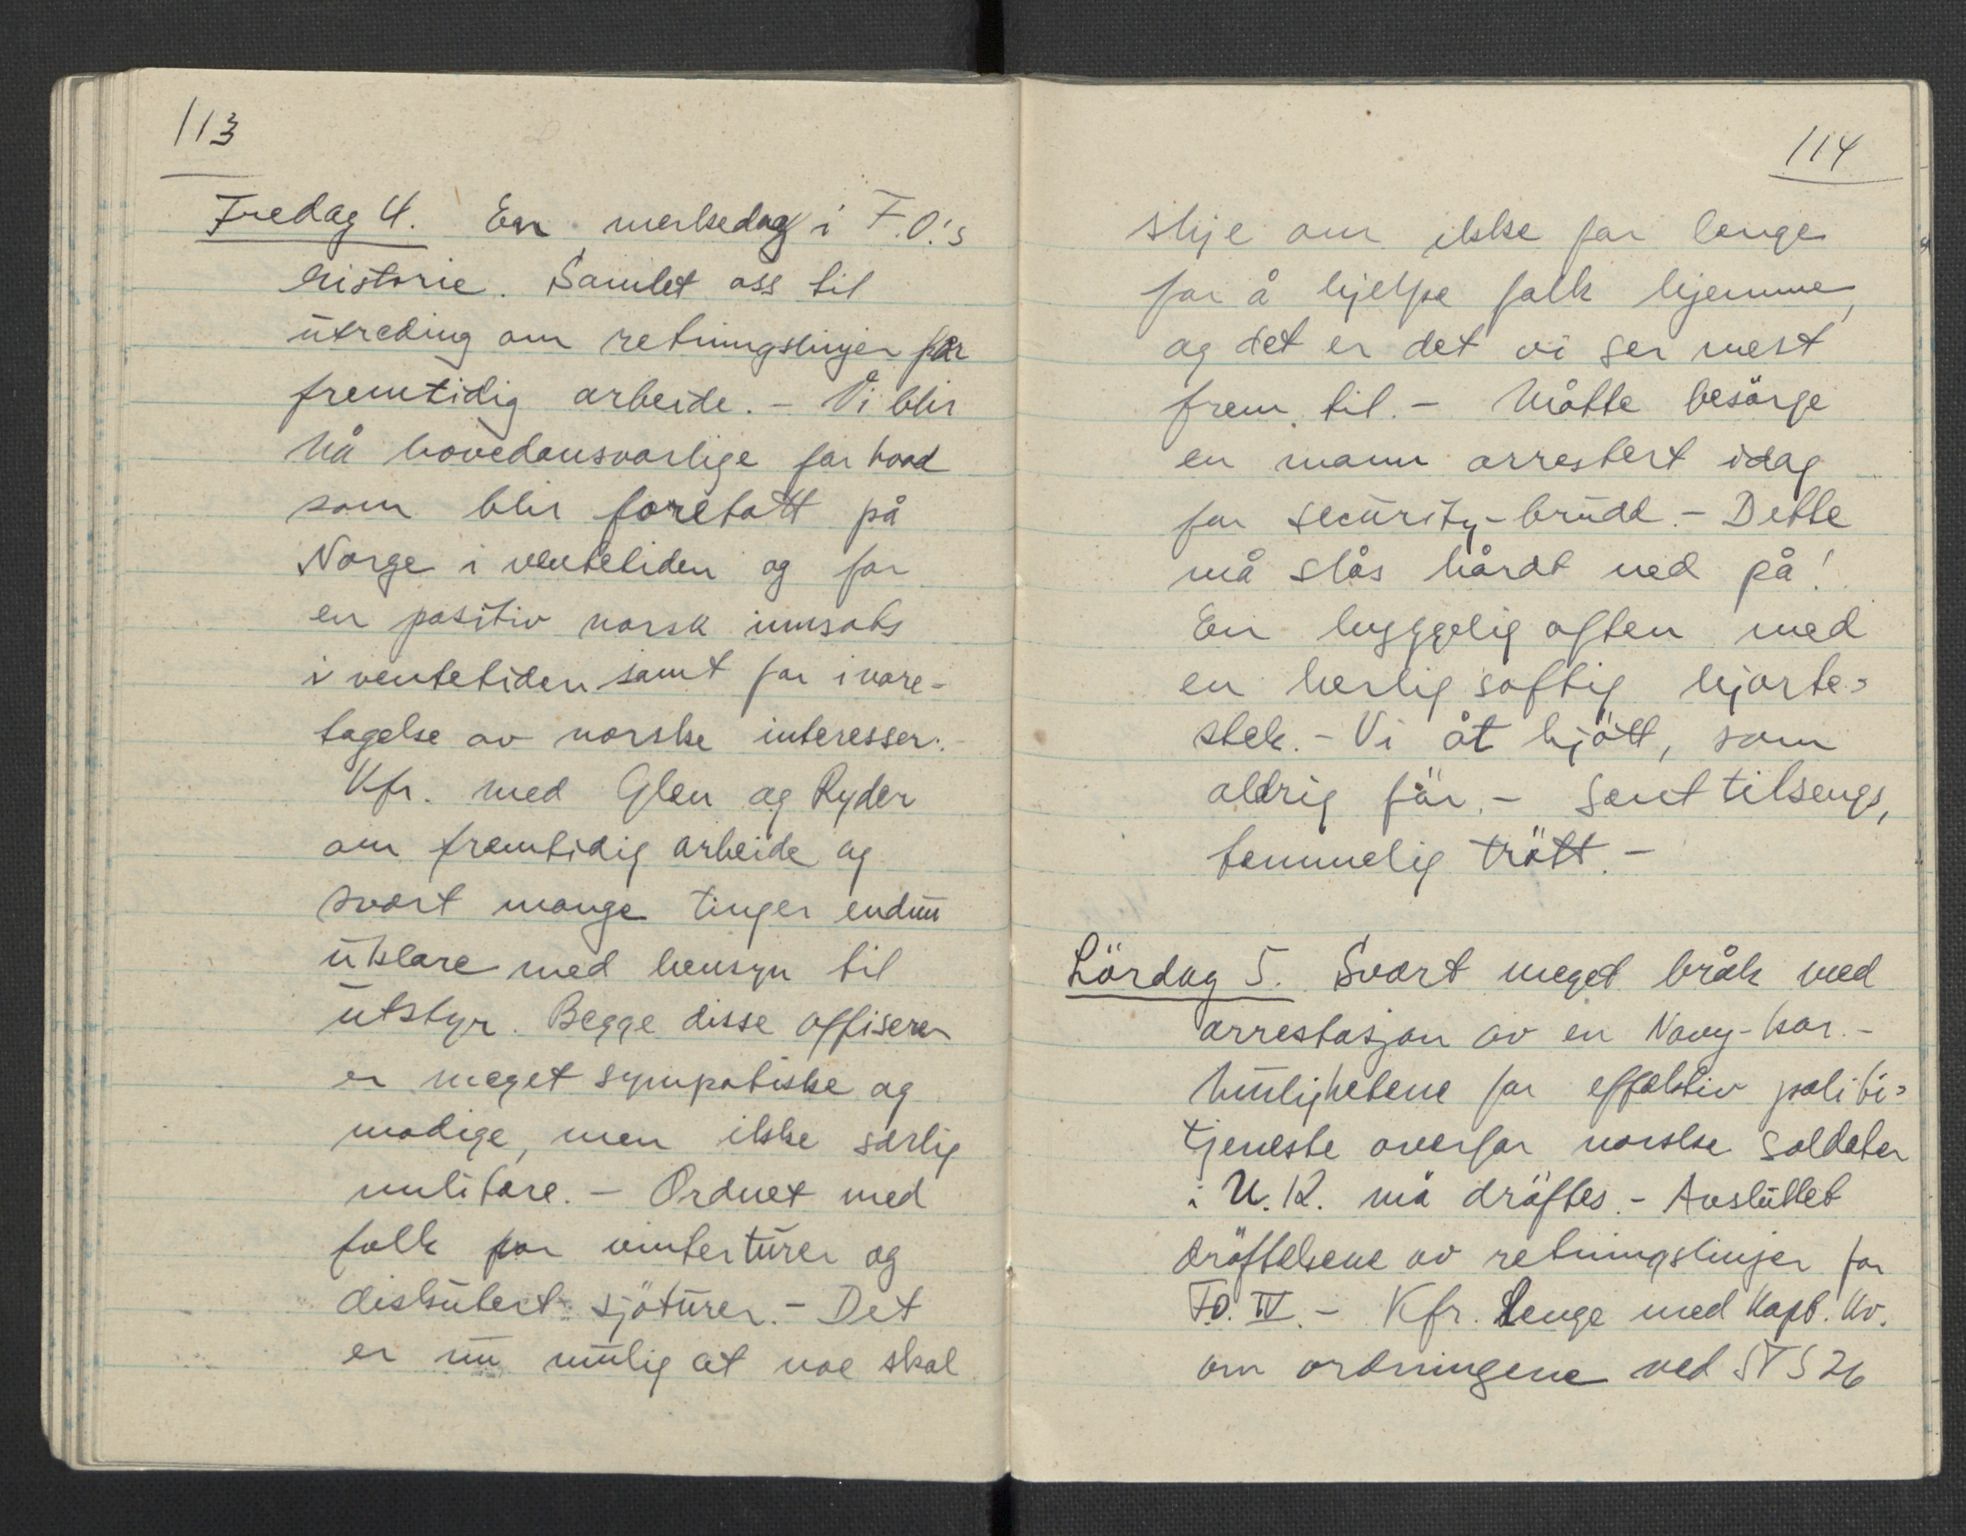 113
Fredag 4. En merkedag i F.O.'s
historie. Samlet oss til
utreding om retningslinjer for
fremtidig arbeide. - Vi blir
nå hovedansvarlige for hvad
som blir foretatt på
Norge i ventetiden og for
en positiv norsk innsats
i ventetiden samt for ivare-
tagelse av norske interesser.
Kfr. med Glen og Ryder
om fremtidig arbeide og
svært mange tinger endnu
uklare med hensyn til
utstyr. Begge disse offiserer
er meget sympatiske og
modige, men ikke særlig
militære. - Ordnet med
folk for vinterturer og
diskutert sjöturer. - Det
er nu mulig at noe skal
114
skje om ikke for lenge
for å hjelpe folk hjemme,
og det er det vi ser mest
frem til. - Måtte besörge
en mann arrestert idag
for security-brudd. - Dette
må slås hårdt ned på!
En hyggelig aften med
en herlig saftig hjorte=
stek. - Vi åt kjött, som
aldrig för. - Sent tilsengs,
temmelig trött. -
Lördag 5. Svært meget bråk med
arrestasjon av en Navy-kar. -
Mulighetene for effektiv politi=
tjeneste overfor norske soldater
i U.K. må dröftes. - Avsluttet
dröftelsene av retningslinjer for
F.O. IV. - Kfr. lenge med Kapt. Kv.
om ordningene ved STS 26